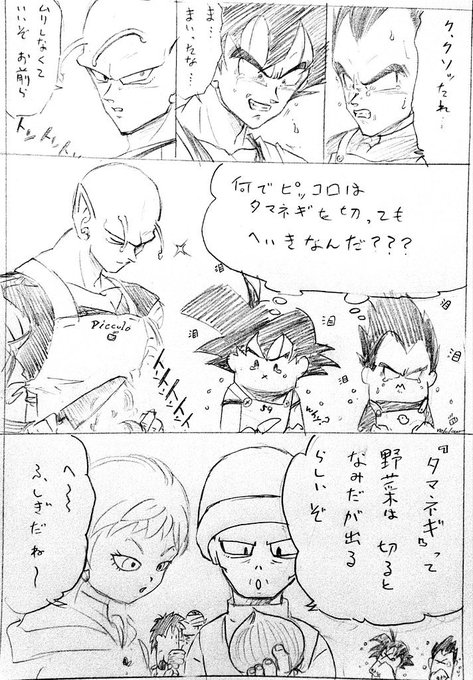 ク、クソッ
たれ…
ま…
まいったな…
ムリしなくて
いいぞ お前ら
トントン
何でピッコロは
タマネギを切っても
へいきなんだ???
泪
泪
泪
泪
Picculo
トントントントン
59
why?
『タマネギ』って
野菜は 切ると
なみだが出る
らしいぞ
へ〜〜
ふしぎだね〜